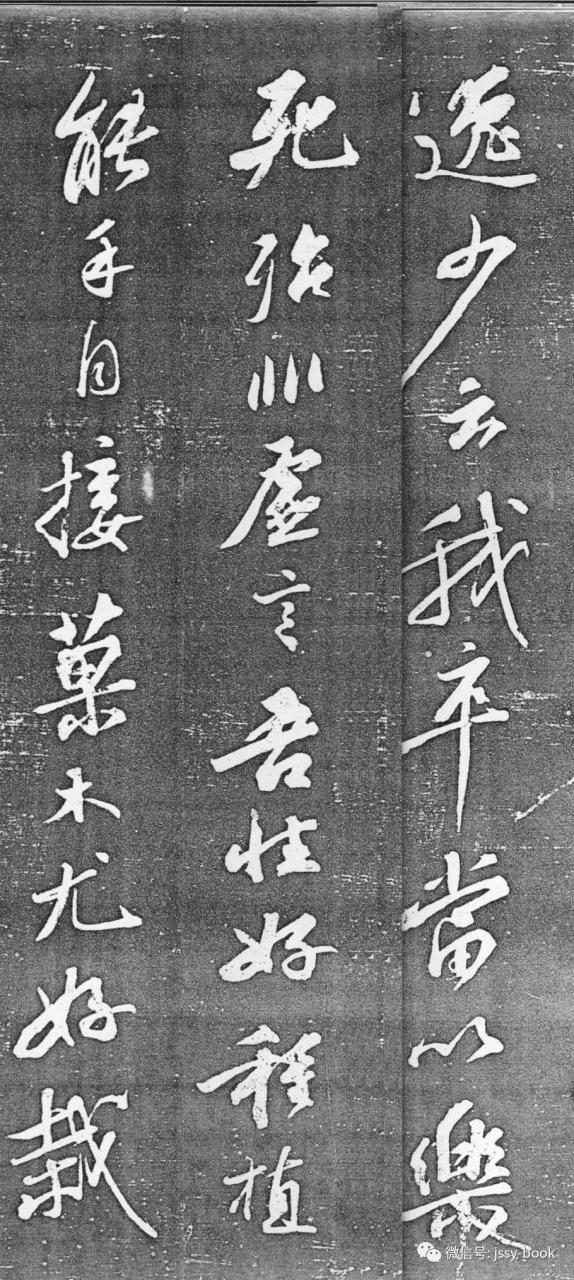 逸少云我卒當以樂
死殆非虛言吾性好種植
能手自接菓木尤好栽
微信号: jssy-book